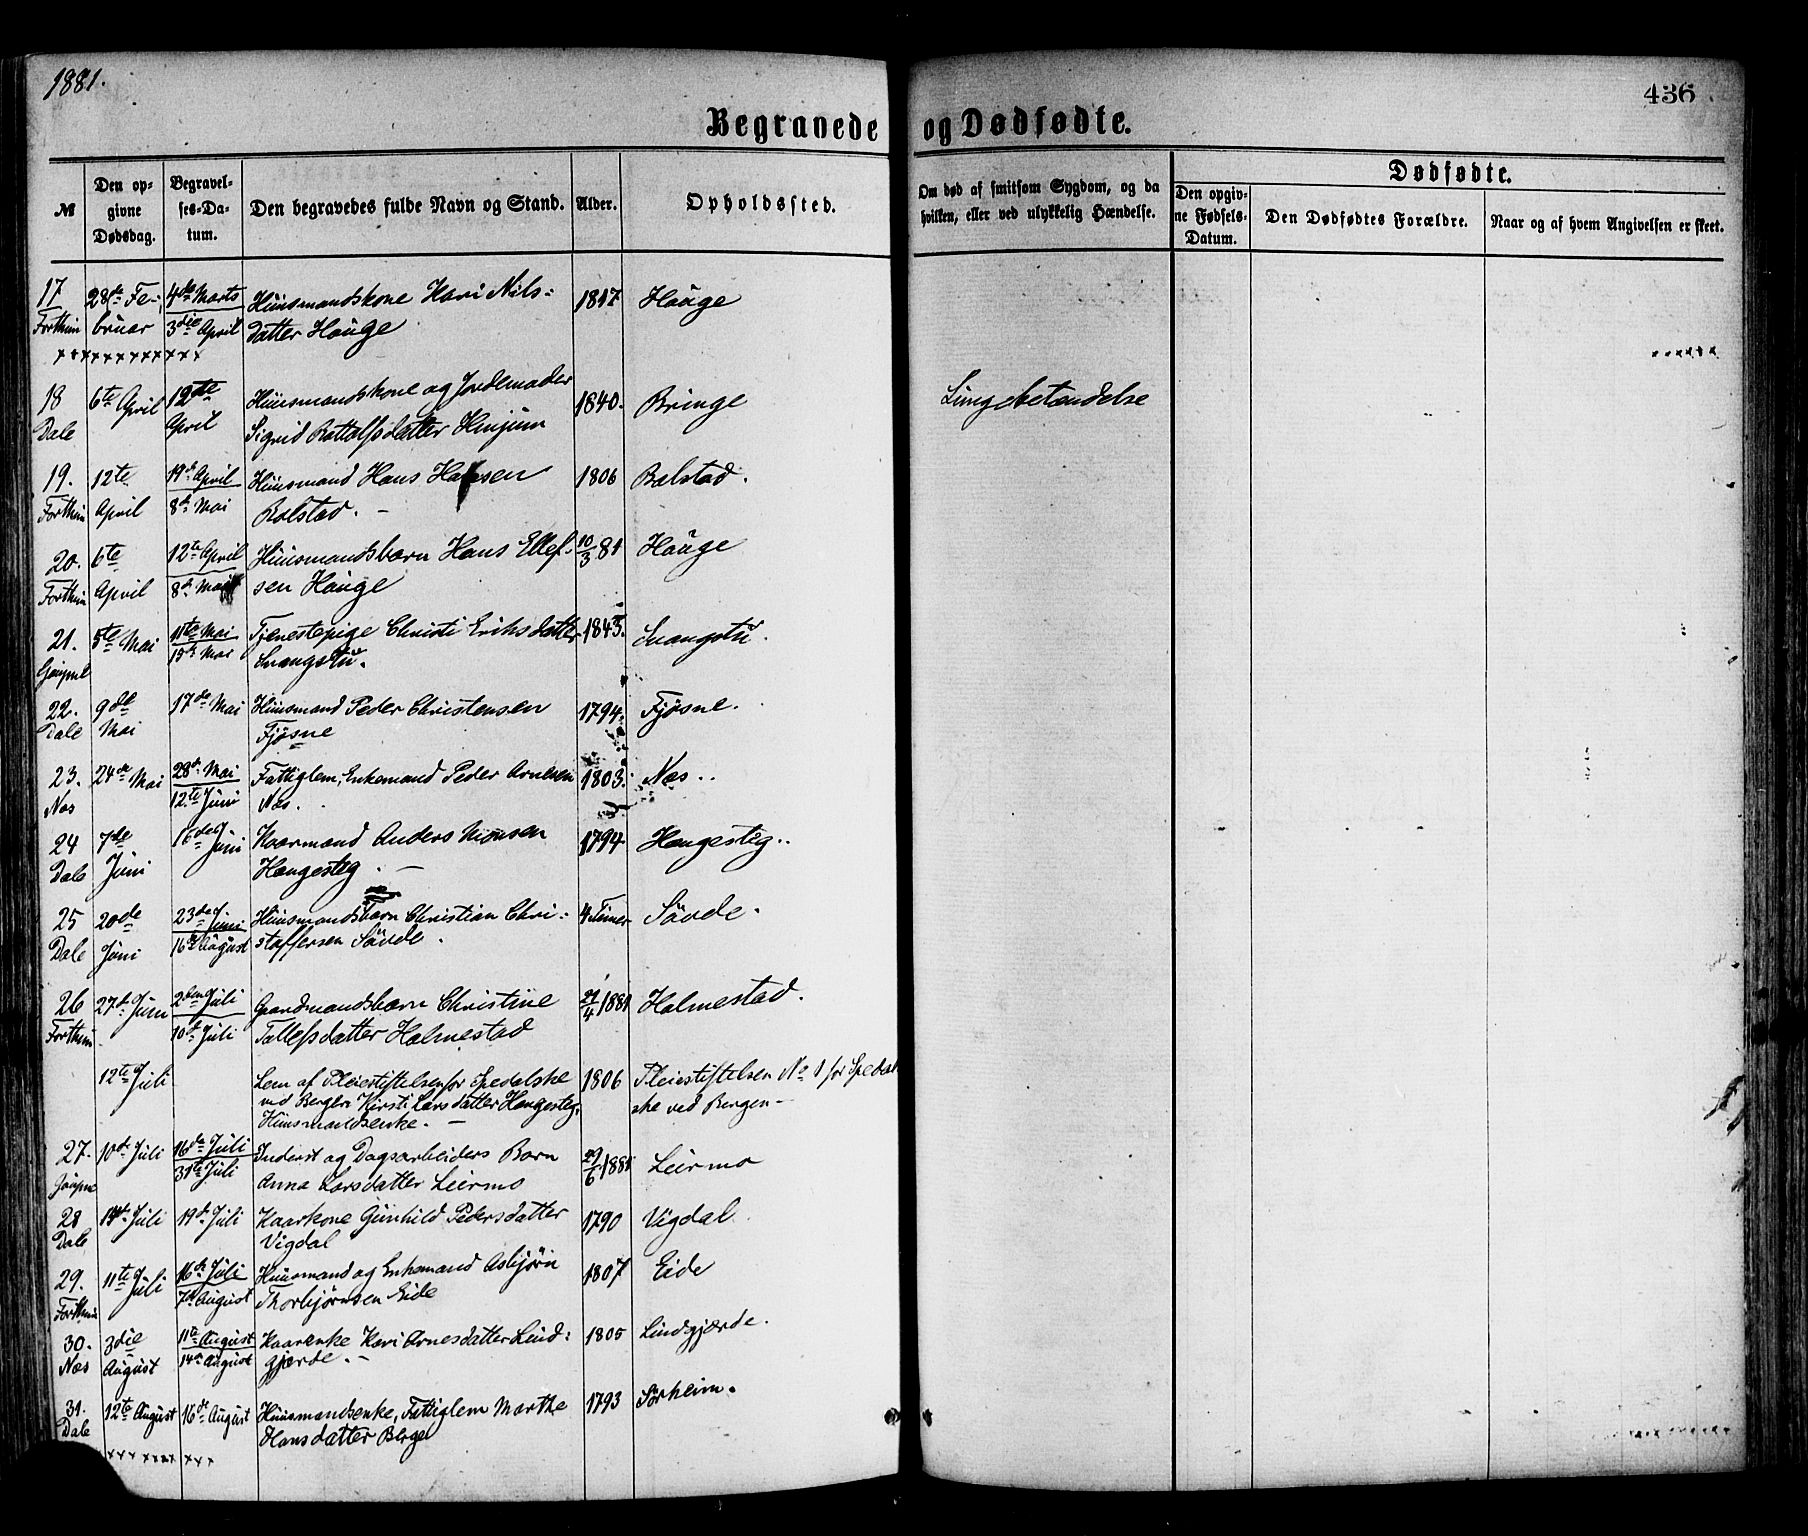 1881.
436
Begravede og Dødfødte.
№
Den opgivne Dødsdag.
Begravelses-Datum.
Den begravedes fulde Navn og Stand.
Alder.
Opholdssted.
Om død af smitsom Sygdom, og da hvilken, eller ved ulykkelig Hændelse.
Dødfødte.
Den opgivne Fødsels-Datum.
Den Dødfødtes Forældre.
Naar og af hvem Angivelsen er skeet.
17 28de Fe- 4de Marts Huusmandskone Kari Nils- 1817 Hauge
Forthun bruar 3die April datter Hauge
18 6te April 12te Huusmandskone og Jordemoder 1840. Bringe Lungebetændelse
Dale April Sigrid Rottolfsdatter Hinjum
19. 12te 19de April Huusmand Hans Hansen 1806 Bolstad.
Forthun April 8de Mai Bolstad.
20. 6te 12te April Huusmandsbarn Hans Ellef- 10/3 81 Hauge
Forthun April 8de Mai sen Hauge
21. 5te Mai 11te Mai Tjenestepige Christi Eriksdatter 1843. Svangstu.
Gaupne 15de Mai Svangstu.
22. 9de 17de Mai Huusmand Peder Christensen 1794. Fjøsne.
Dale Mai Fjøsne
23. 24de Mai 28de Mai Fattiglem, Enkemand Peder Arnesen 1803. Næs.
Næs 12te Juni Næs.
24 7de 16de Juni Kaarmand Anders Monsen 1794 Hængesteg.
Dale Juni Hængesteg.
25 20de 23de Juni Huusmandsbarn Christian Chri- 4 Timer Søvde.
Dale Juni 16de August stoffersen Søvde.
26 27de Juni 2den Juli Gaardmandsbarn Christine 21/4 1881 Holmestad.
Forthun 10de Juli Tollefsdatter Holmestad
12te Juli Lem af Pleiestiftelsen for Spedalske 1806 Pleiestiftelsen No 1 for Spedal-
ved Bergen Kirsti Larsdatter Hængesteg, ske ved Bergen
Huusmandsenke.
27. 10de Juli 16de Juli Inderst og Dagsarbeiders Barn 29/6 1881 Leirmo
Gaupne 31te Juli Anna Larsdatter Leirmo
28 14de Juli 19de Juli Kaarkone Gunhild Pedersdatter 1790 Vigdal
Dale Vigdal
29. 11te Juli 16de Juli Huusmand og Enkemand Asbjørn 1807 Eide
Forthun 7de August Thorbjørnsen Eide
30. 3die 11te August Kaarenke Kari Arnesdatter Lind- 1805 Lindgjærde.
Næs August 14de August gjærde.
31. 12te August 16de August Huusmandsenke, Fattiglem Marthe 1793 Sørheim.
Dale Hansdatter Berge